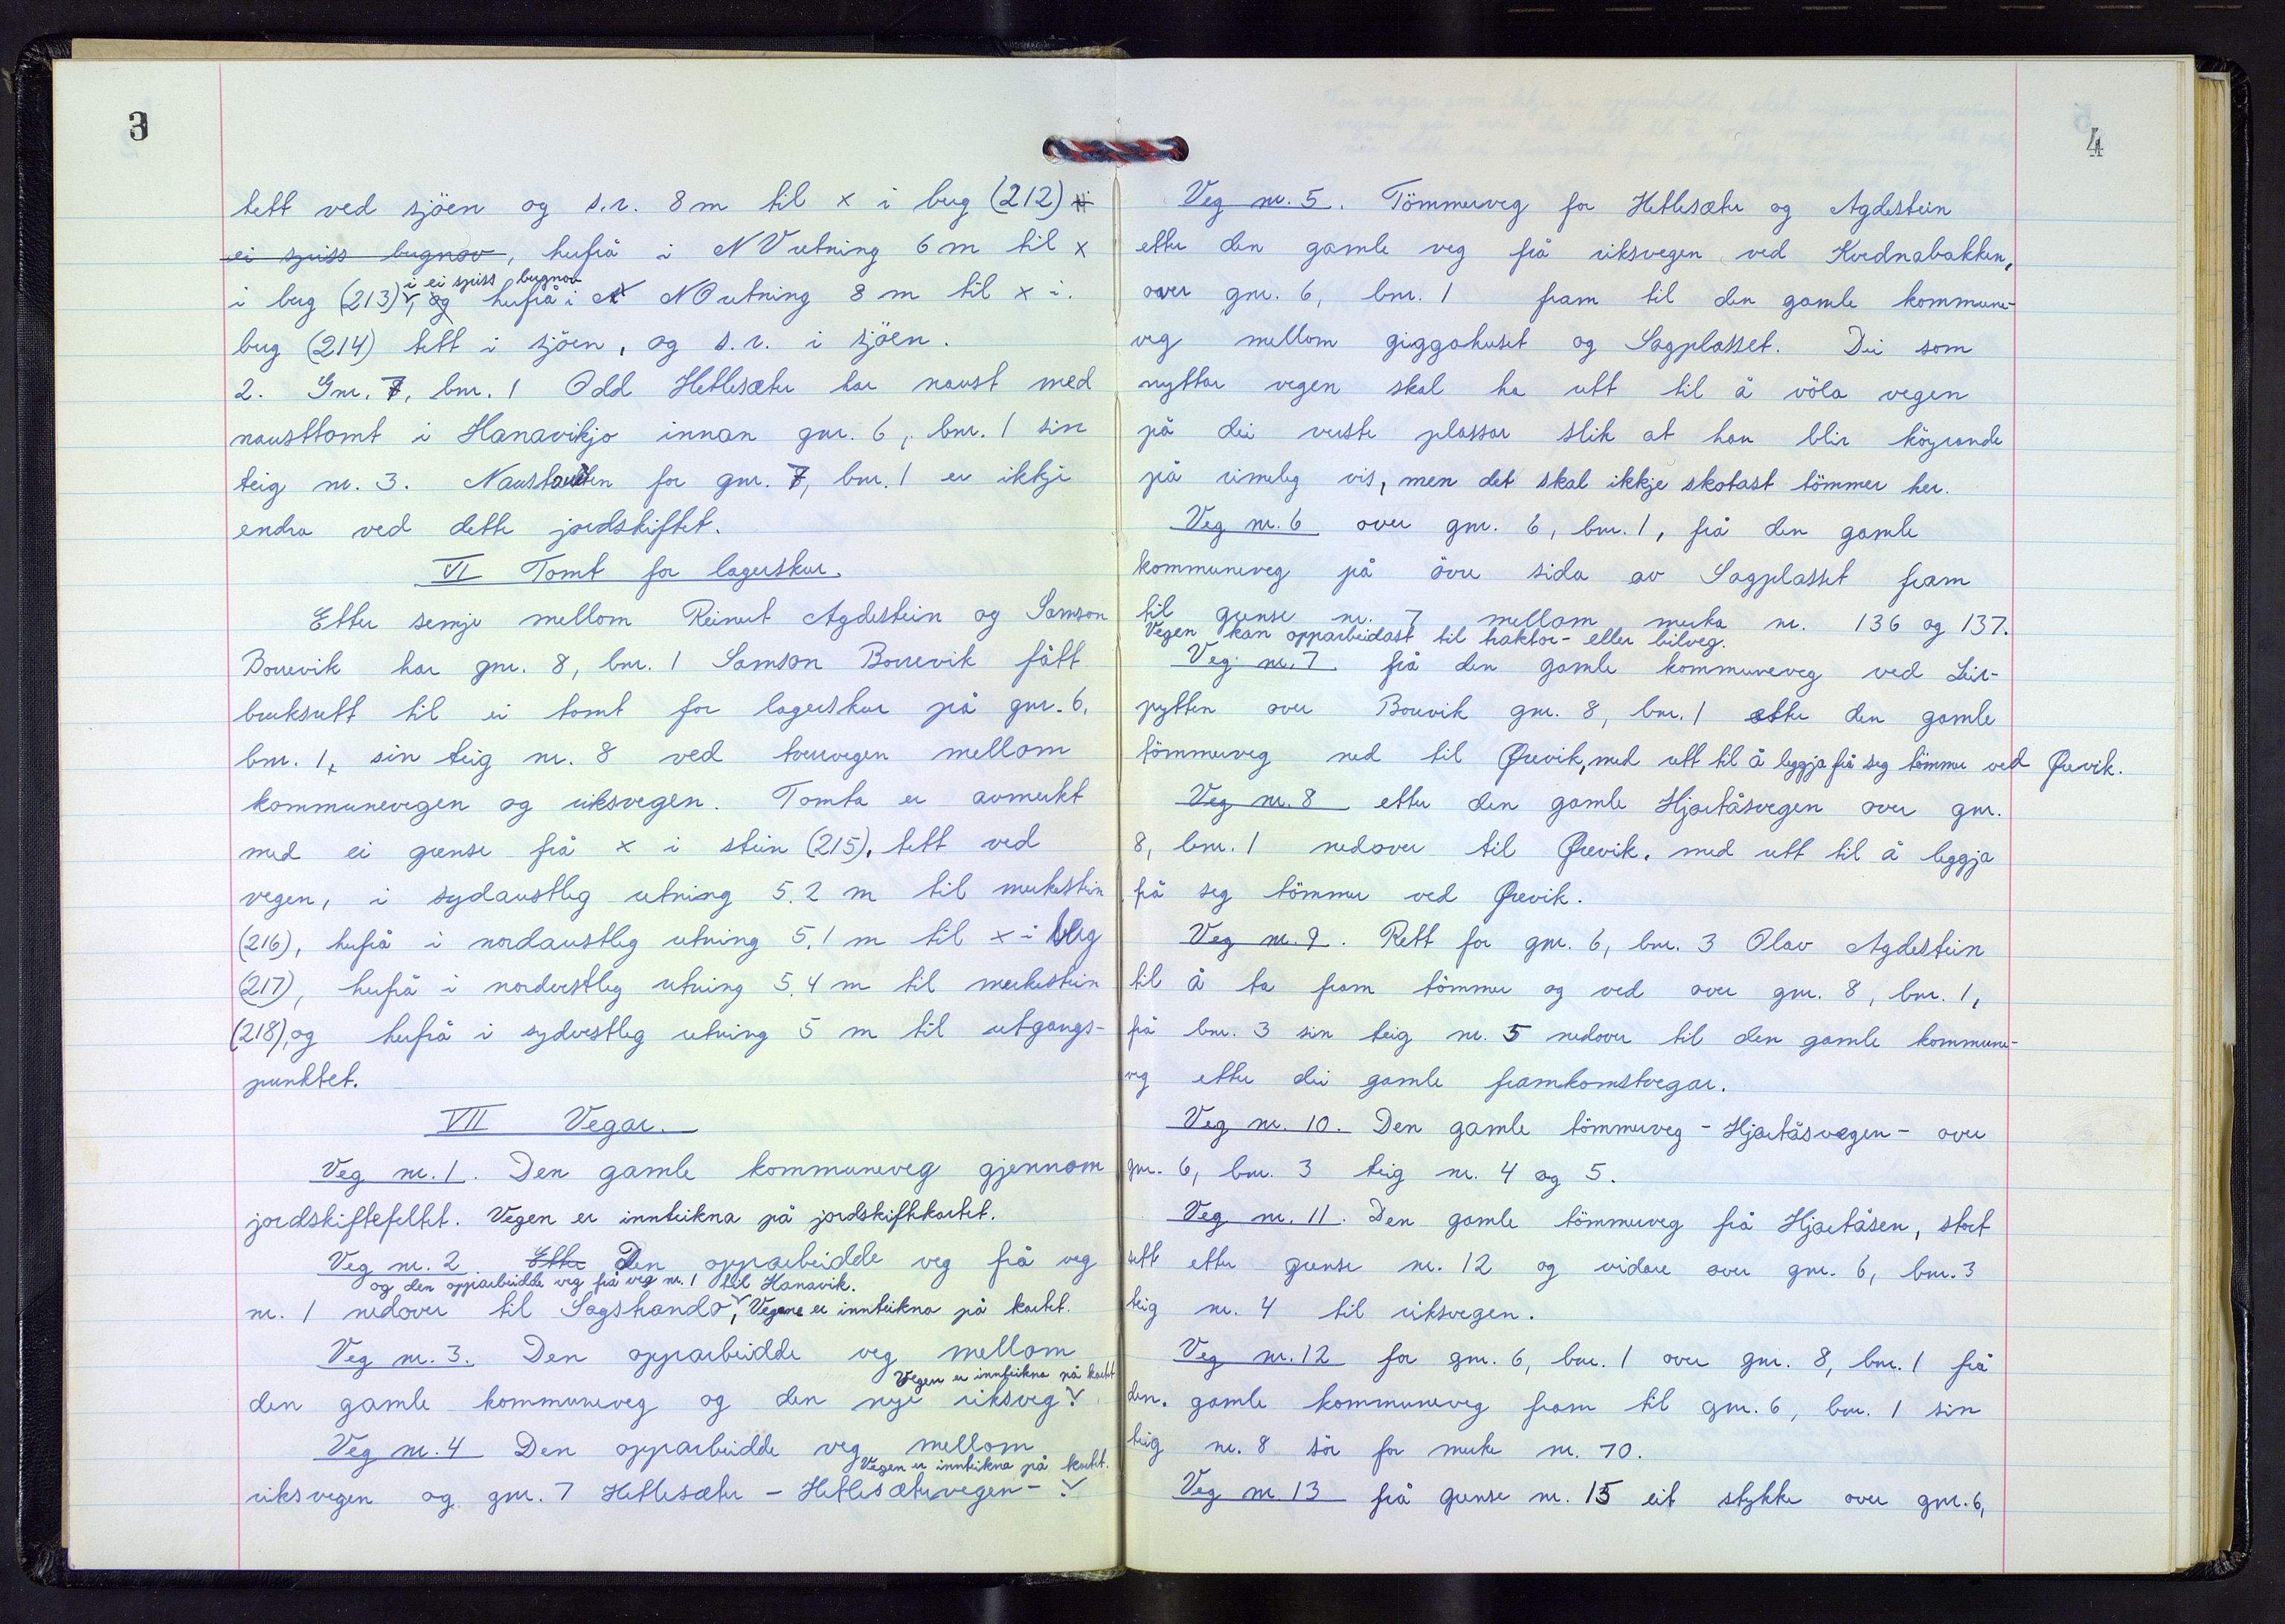 3
tett ved sjöen og s.r. 8 m til x i berg (212)
ei spiss bergnov, herfrå i NV retning 6 m til x
i ei spiss bergnov
i berg (213), og herfrå i NO retning 8 m til x i
berg (214) tett i sjöen, og s.r. i sjöen.
2. Gnr. 7, bnr. 1 Odd Hetlesæter har naust med
nausttomt i Hanavikjo innan gnr. 6, bnr. 1 sin
teig nr. 3. Naustretten for gnr. 7, bnr. 1 er ikkje
endra ved dette jordskiftet.
VI Tomt for lagerskur.
Etter semje mellom Reinert Agdestein og Samson
Borrevik har gnr. 8, bnr. 1 Samson Borrevik fått
bruksrett til ei tomt for lagerskur på gnr. 6,
bnr. 1, sin teig nr. 8 ved tverrvegen mellom
kommunevegen og riksvegen. Tomta er avmerkt
med ei grense frå x i stein (215), tett ved
vegen, i sydaustleg retning 5.2 m til merkestein
(216), herfrå i nordaustleg retning 5,1 m til x i berg
(217), herfrå i nordvestleg retning 5.4 m til merkestein
(218), og herfrå i sydvestleg retning 5 m til utgangs-
punktet.
VII Vegar.
Veg nr. 1. Den gamle kommuneveg gjennom
jordskiftefeltet. Vegen er innteikna på jordskiftekartet.
Veg nr. 2. Etter Den opparbeidde veg frå veg
og den opparbeidde veg frå veg nr. 1 til Hanavik.
nr. 1 nedover til Sagshando, Vegane er innteikna på kartet.
Veg nr. 3. Den opparbeidde veg mellom
Vegen er innteikna på kartet
den gamle kommuneveg og den nye riksveg.
Veg nr. 4 Den opparbeidde veg mellom
Vegen er innteikna på kartet.
riksvegen og gnr. 7 Hetlesæter - Hetlesætervegen -.
4
Veg nr. 5. Tömmerveg for Hetlesæter og Agdestein
etter den gamle veg frå riksvegen ved Kvednabakken,
over gnr. 6, bnr. 1 fram til den gamle kommune-
veg mellom giggahuset og Sagplasset. Dei som
nyttar vegen skal ha rett til å völa vegen
på dei verste plassar slik at han blir köyrande
på rimeleg vis, men det skal ikkje skotast tömmer her.
Veg nr. 6 over gnr. 6, bnr. 1, frå den gamle
kommuneveg på övre sida av Sagplasset fram
til grense nr. 7 mellom merka nr. 136 og 137.
Vegen kan opparbeidast til traktor- eller bilveg.
Veg nr. 7 frå den gamle kommuneveg ved Leir-
pytten over Borrvik gnr. 8, bnr. 1 etter den gamle
tömmerveg ned til Ørevik, med rett til å leggja frå seg tömmer ved Ørevik.
Veg nr. 8 etter den gamle Hjortåsvegen over gnr.
8, bnr. 1 nedover til Ørevik. med rett til å leggja
frå seg tömmer ved Ørevik.
Veg nr. 9. Rett for gnr. 6, bnr. 3 Olav Agdestein
til å ta fram tömmer og ved over gnr. 8, bnr. 1,
frå bnr. 3 sin teig nr. 5 nedover til den gamle kommune-
veg etter dei gamle framkomstvegar.
Veg nr. 10. Den gamle tömmerveg - Hjortåsvegen - over
gnr. 6, bnr. 3 teig nr. 4 og 5.
Veg nr. 11. Den gamle tömmerveg frå Hjortåsen, stort
sett etter grense nr. 12 og vidare over gnr. 6, bnr. 3
teig nr. 4 til riksvegen.
Veg nr. 12 for gnr. 6, bnr. 1 over gnr. 8, bnr. 1 frå
den gamle kommuneveg fram til gnr. 6, bnr. 1 sin
teig nr. 8 sör for merke nr. 70.
Veg nr. 13 frå grense nr. 15 eit stykke over gnr. 6,